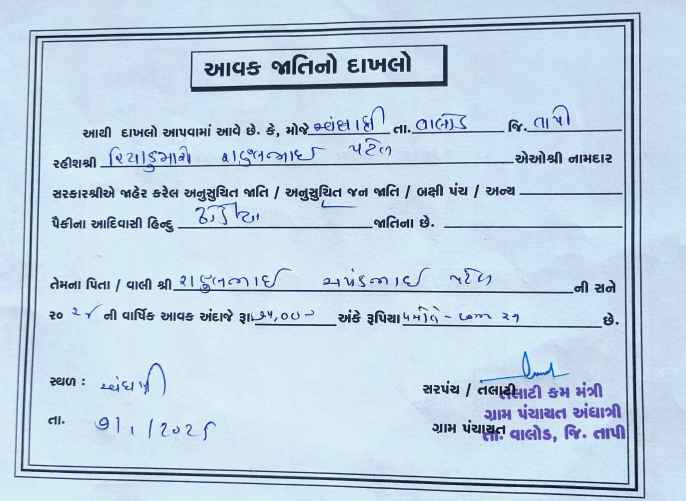 આવક જાતિનો દાખલો
આથી દાખલો આપવામાં આવે છે. કે, મોજે અંધાત્રી તા. વાલોડ જિ. તાપી
રહીશશ્રી રિયાકુમારી રાહુલભાઈ પટેલ એઓશ્રી નામદાર
સરકારશ્રીએ જાહેર કરેલ અનુસુચિત જાતિ / અનુસુચિત જન જાતિ / બક્ષી પંચ / અન્ય
પૈકીના આદિવાસી હિન્દુ ઢોડીયા જાતિના છે.
તેમના પિતા / વાલી શ્રી રાહુલભાઈ પટેલ ની સને
૨૦ ૨૪ ની વાર્ષિક આવક અંદાજે રૂા. ૭૫,૦૦૦ અંકે રૂપિયા છે.
સ્થળ : અંધાત્રી
સરપંચ / તલાટી
તલાટી કમ મંત્રી
ગ્રામ પંચાયત અંધાત્રી
તા. 9/1/2025
ગ્રામ પંચાયત
તા. વાલોડ, જિ. તાપી